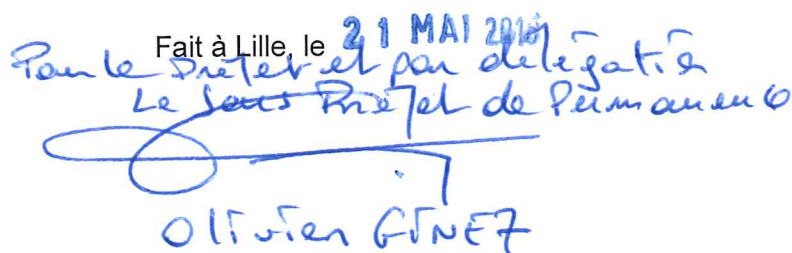 Fait à Lille, le 21 MAI
Pour le Préfet et par délégation
Le Sous Préfet de Permanence
Olivier GINEZ